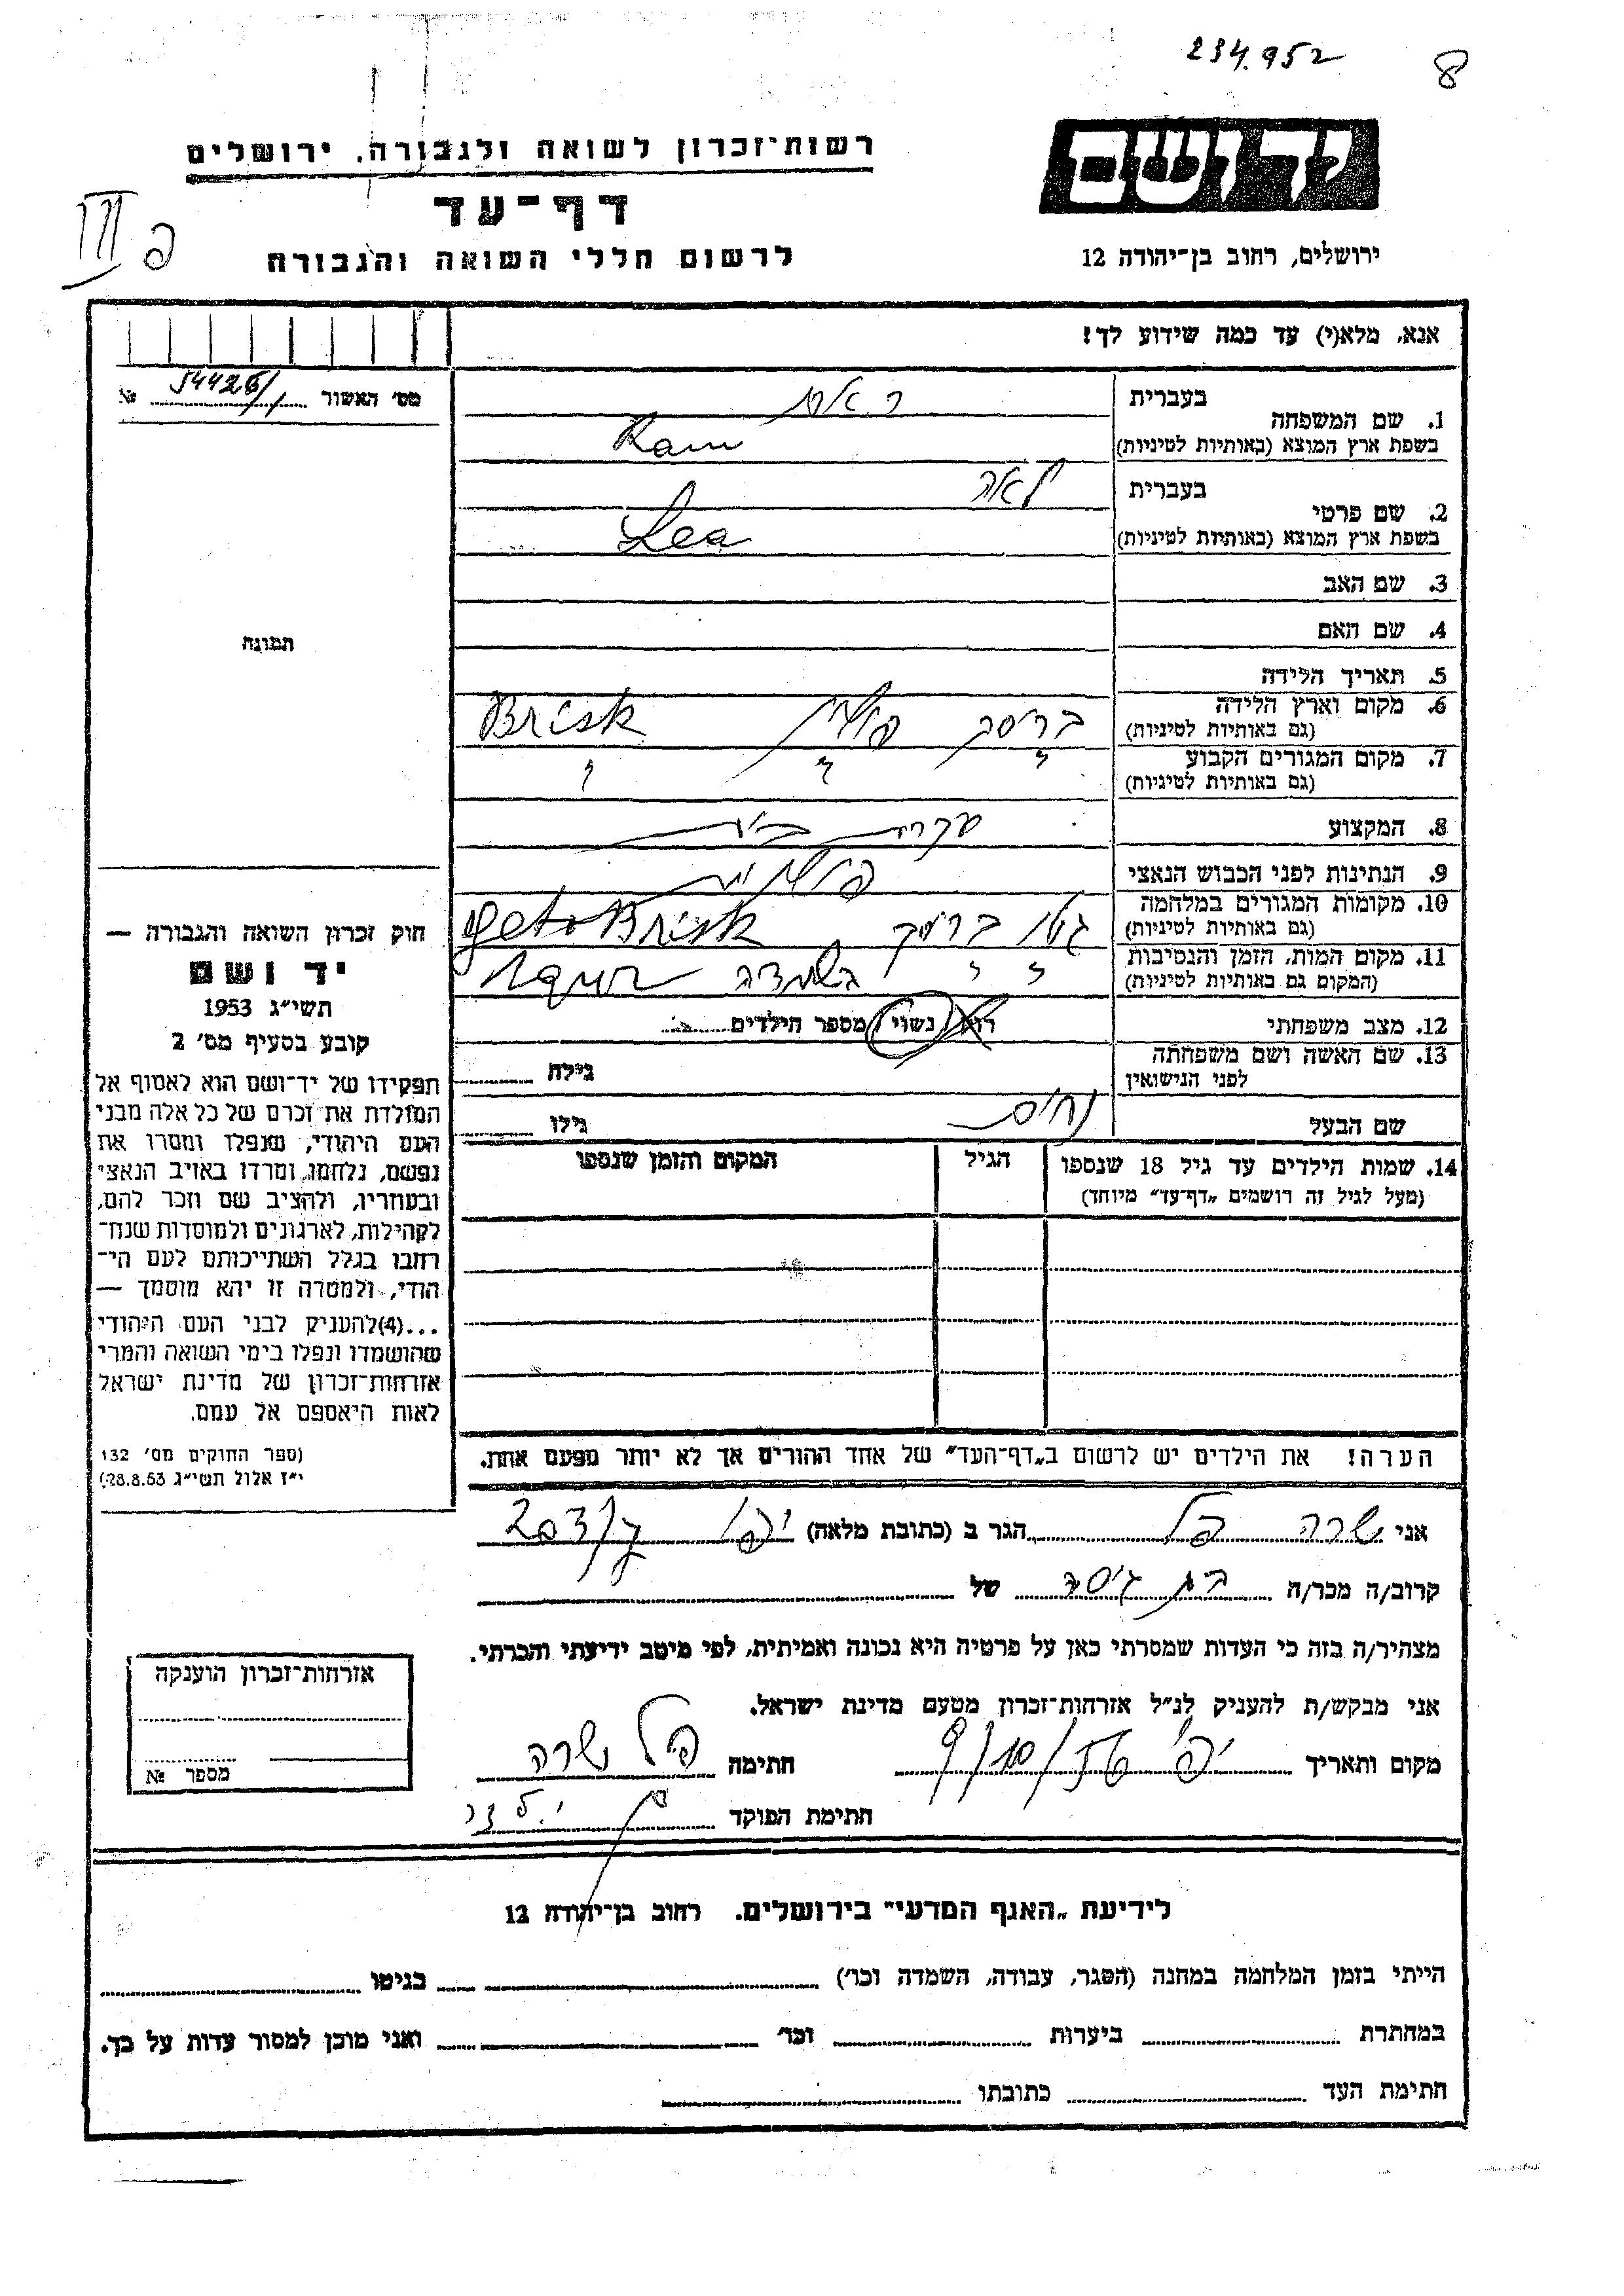 234.952
8
יד ושם
רשות־זכרון לשואה ולגבורה, ירושלים
דף־עד
III פ
ירושלים, רחוב בן־יהודה 12
לרשום חללי השואה והגבורה
אנא, מלא(י) עד כמה שידוע לך!
מס׳ האשור 54426/1 №
1. שם המשפחה
בעברית
בשפת ארץ המוצא (באותיות לטיניות) Ram
2. שם פרטי
בעברית לאה
בשפת ארץ המוצא (באותיות לטיניות) Lea
3. שם האב
4. שם האם
תמונה
5. תאריך הלידה
6. מקום וארץ הלידה בריסק פולין Brisk
(גם באותיות לטיניות)
7. מקום המגורים הקבוע
(גם באותיות לטיניות)
8. המקצוע עקרת בית
9. הנתינות לפני הכבוש הנאצי פולנית
10. מקומות המגורים במלחמה גטו בריסק geto Brisk
(גם באותיות לטיניות)
11. מקום המות, הזמן והנסיבות
(המקום גם באותיות לטיניות)
12. מצב משפחתי רוק/נשוי/ מספר הילדים
13. שם האשה ושם משפחתה
לפני הנישואין
גילה
שם הבעל נחום גילו
14. שמות הילדים עד גיל 18 שנספו
(מעל לגיל זה רושמים „דף־עד״ מיוחד)
הגיל
המקום והזמן שנספו
חוק זכרון השואה והגבורה —
יד ושם
תשי״ג 1953
קובע בסעיף מס׳ 2
תפקידו של יד־ושם הוא לאסוף אל
המולדת את זכרם של כל אלה מבני
העם היהודי, שנפלו ומסרו את
נפשם, נלחמו ומרדו באויב הנאצי
ובעוזריו, ולהציב שם וזכר להם,
לקהילות, לארגונים ולמוסדות שנח־
רבו בגלל השתייכותם לעם הי־
הודי, ולמטרה זו יהא מוסמך —
...(4)להעניק לבני העם היהודי
שהושמדו ונפלו בימי השואה והמרי
אזרחות־זכרון של מדינת ישראל
לאות היאספם אל עמם.
(ספר החוקים מס׳ 132
י״ז אלול תשי״ג 28.8.53)
הערה! את הילדים יש לרשום ב„דף־העד״ של אחד ההורים אך לא יותר מפעם אחת.
אני שרה פל הגר ב (כתובת מלאה) יפו
קרוב/ה מכר/ה בת גיסה של
מצהיר/ה בזה כי העדות שמסרתי כאן על פרטיה היא נכונה ואמיתית, לפי מיטב ידיעתי והכרתי.
אני מבקש/ת להעניק לנ״ל אזרחות־זכרון מטעם מדינת ישראל.
מקום ותאריך חתימה פל שרה
חתימת הפוקד
אזרחות־זכרון הוענקה
מספר №
לידיעת „האגף המדעי״ בירושלים. רחוב בן־יהודה 12
הייתי בזמן המלחמה במחנה (הסגר, עבודה, השמדה וכו׳) בגיטו
במחתרת ביערות וכו׳ ואני מוכן למסור עדות על כך.
חתימת העד כתובתו